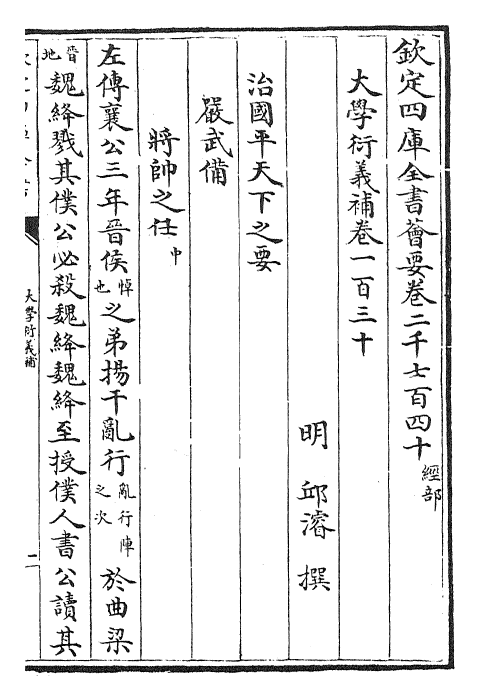 欽定四庫全書薈要卷二千七百四十經部
大學衍義補卷一百三十
明 邱濬 撰
治國平天下之要
嚴武備
將帥之任中
左傳襄公三年晉侯悼也之弟揚干亂行亂行陣之次於曲梁
晉地魏絳戮其僕公必殺魏絳魏絳至授僕人書公讀其
大學衍義補
一